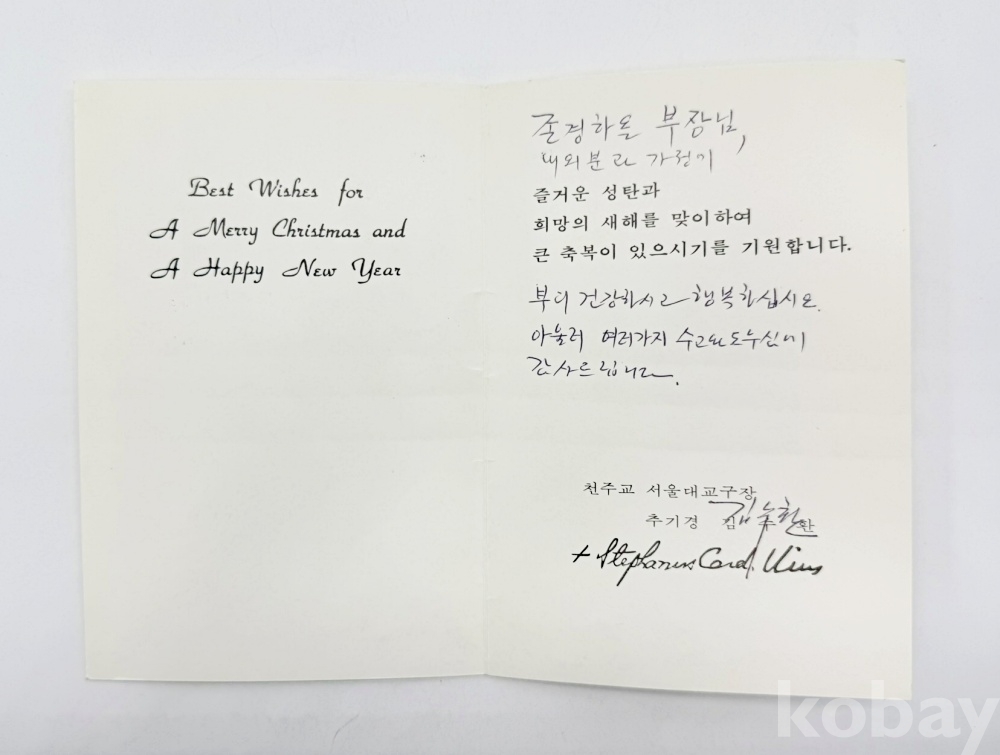 Best Wishes for
A Merry Christmas and
A Happy New Year
존경하온 부장님,
내외분과 가정이
즐거운 성탄과
희망의 새해를 맞이하여
큰 축복이 있으시기를 기원합니다.
부디 건강하시고 행복하십시오.
아울러 여러가지 수고와 도우심에
감사드립니다.
천주교 서울대교구장
추기경 김수환
김수환
+ Stephanus Card. Kim
kobay